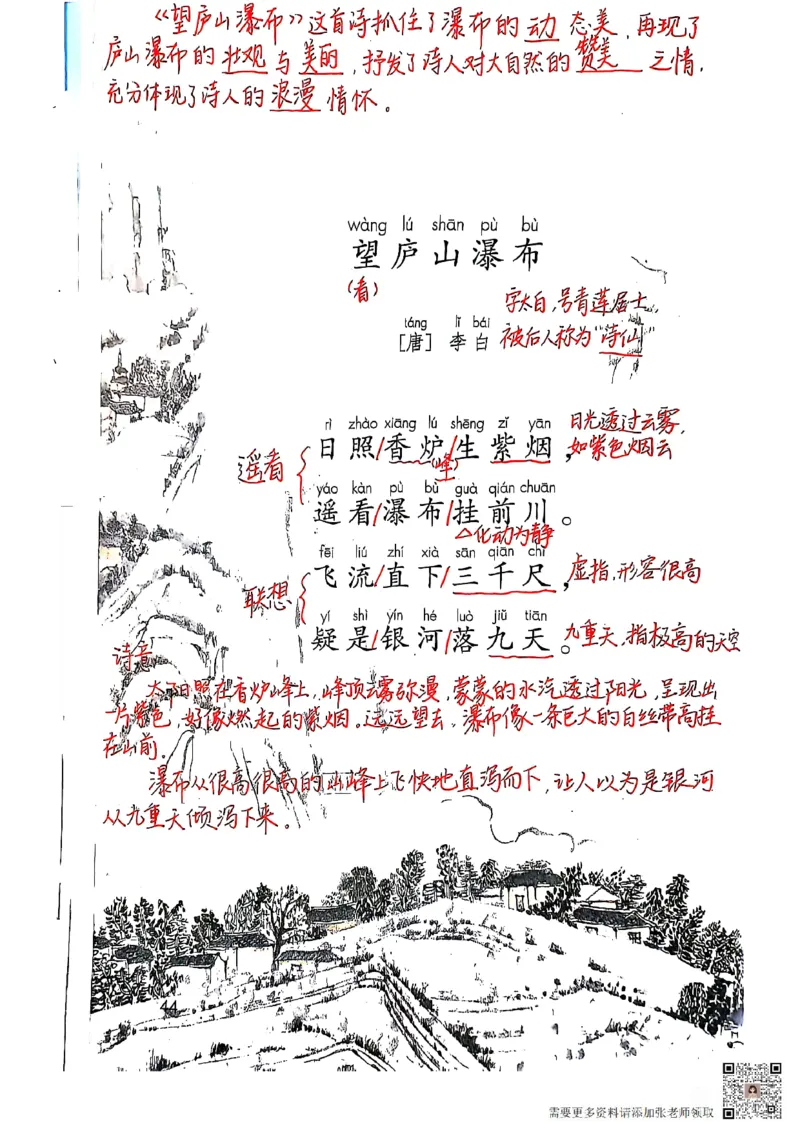 《望庐山瀑布》这首诗抓住了瀑布的动态美,再现了
庐山瀑布的壮观与美的,抒发了诗人对大自然的赞美之情,
充分体现了诗人的浪漫情怀。
wàng lú shān pù bù
望庐山瀑布
(看)
字太白,号青莲居士,
táng lǐ bái
[唐] 李白 被后人称为“诗仙”
rì zhào xiāng lú shēng zǐ yān
日照/香炉/生紫烟,
(峰)
日光透过云雾,
如紫色烟云
遥看
yáo kàn pù bù guà qián chuān
遥看/瀑布/挂前川。
△化动为静
fēi liú zhí xià sān qiān chǐ
飞流/直下/三千尺,虚指,形容很高
联想
yí shì yín hé luò jiǔ tiān
疑是/银河/落九天。九重天,指极高的天空
诗意
太阳照在香炉峰上,峰顶云雾弥漫,蒙蒙的水汽透过阳光,呈现出
一片紫色,好像燃起的紫烟。远远望去,瀑布像一条巨大的白丝带高挂
在山前.
瀑布从很高很高的山峰上飞快地直泻而下,让人以为是银河
从九重天倾泻下来。
需要更多资料请添加张老师领取